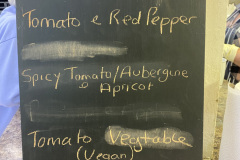 Tomato & Red Pepper
Spicy Tomato/Aubergine
& Apricot
Tomato Vegtable
(Vegan)